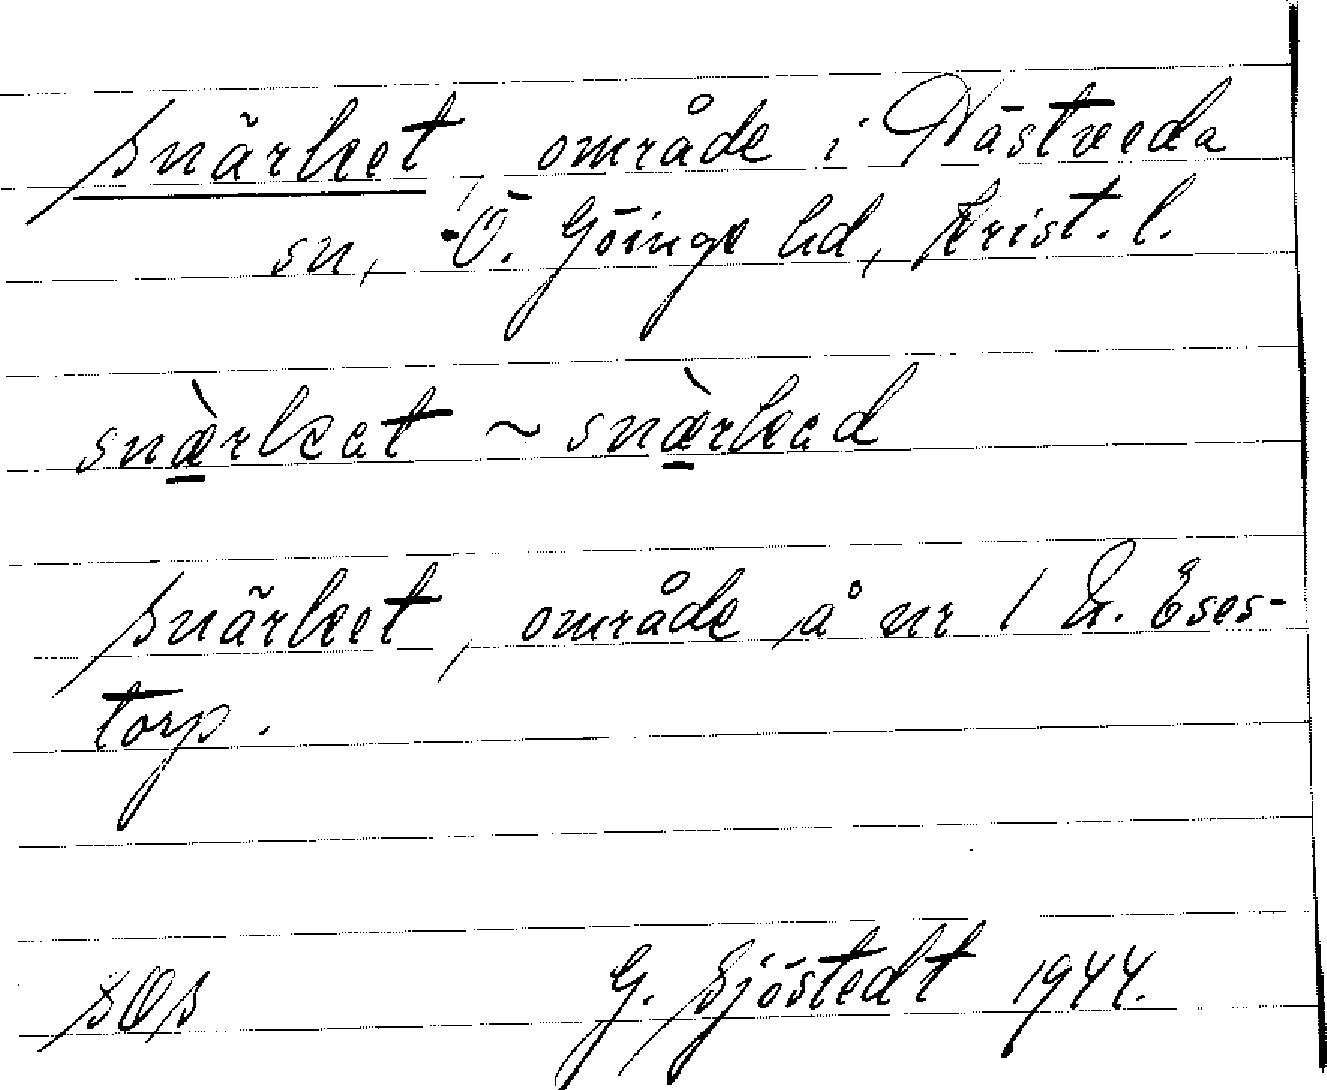 Snärket, område i Hästveda
sn, Ö. Göinge hd, Krist. l.
snæ̀rkət ~ snæ̀rkəd
Snärket, område å nr 1 Eses-
torp.
SOS G. Sjöstedt 1944.